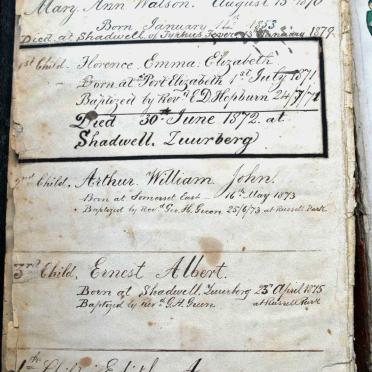 Mary Ann Watson. August 15 1870
Born January 12th 1853
Died at Shadwell of Typhus Fever January 1879.
1st Child. Florence Emma Elizabeth
Born at Port Elizabeth 1st July 1871
Baptized by Revd E D Hepburn 24/7/71
Died 30th June 1872 at
Shadwell, Zuurberg
2nd Child. Arthur William John.
Born at Somerset East 16th May 1873
Baptized by Revd Geo. H. Green 25/6/73 at Russell Park
3rd Child Ernest Albert.
Born at Shadwell, Zuurberg 23rd April 1875
Baptized by Revd G. H. Green at Russell Park
4th Child Edith A